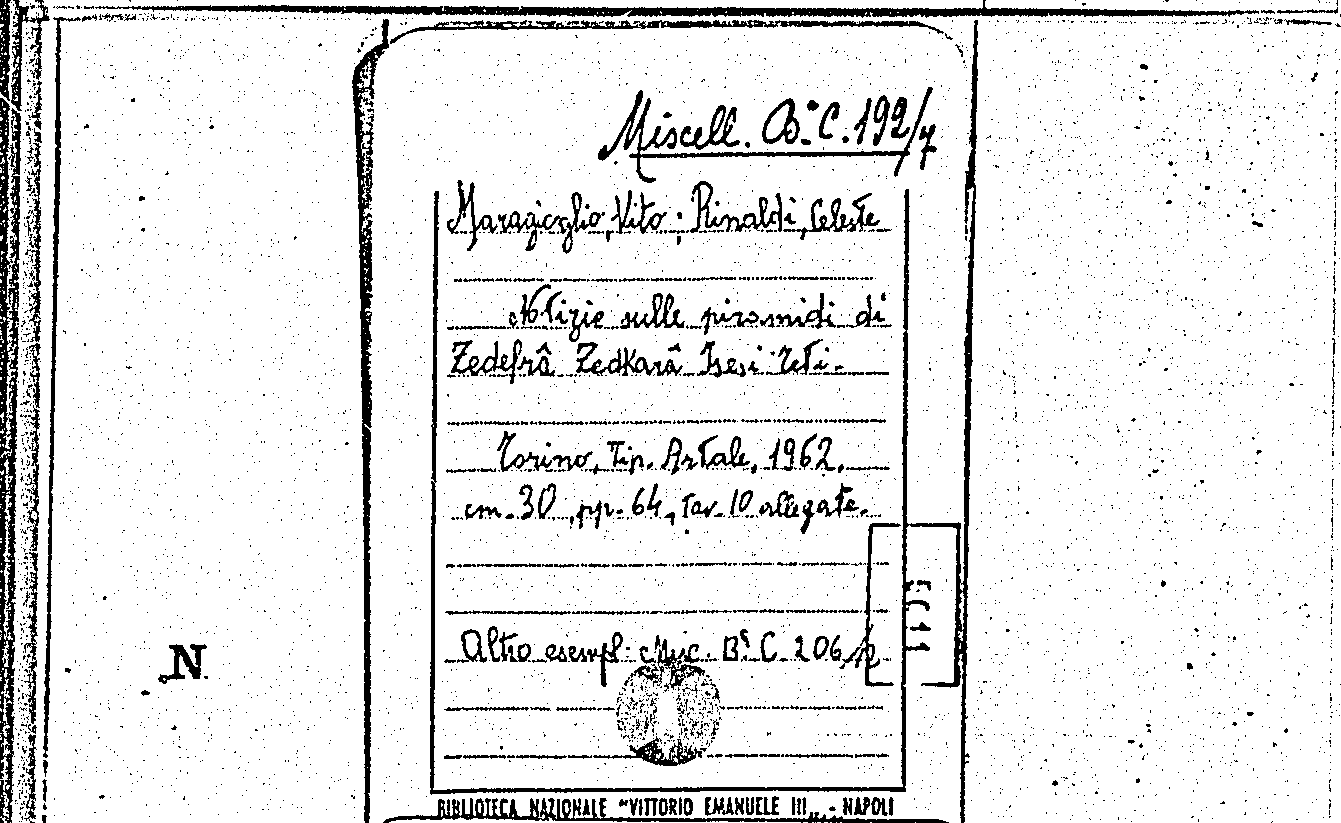 Miscell. Bª C. 192/7
Maragioglio, Vito; Rinaldi, Celeste
Notizie sulle piramidi di
Zedefrâ Zedkarâ Isesi Teti.
Torino, Tip. Artale, 1962.
cm. 30, pp. 64, tav. 10 allegate.
Altro esempl. Misc. Bª C. 206/
N
BIBLIOTECA NAZIONALE "VITTORIO EMANUELE III„ - NAPOLI